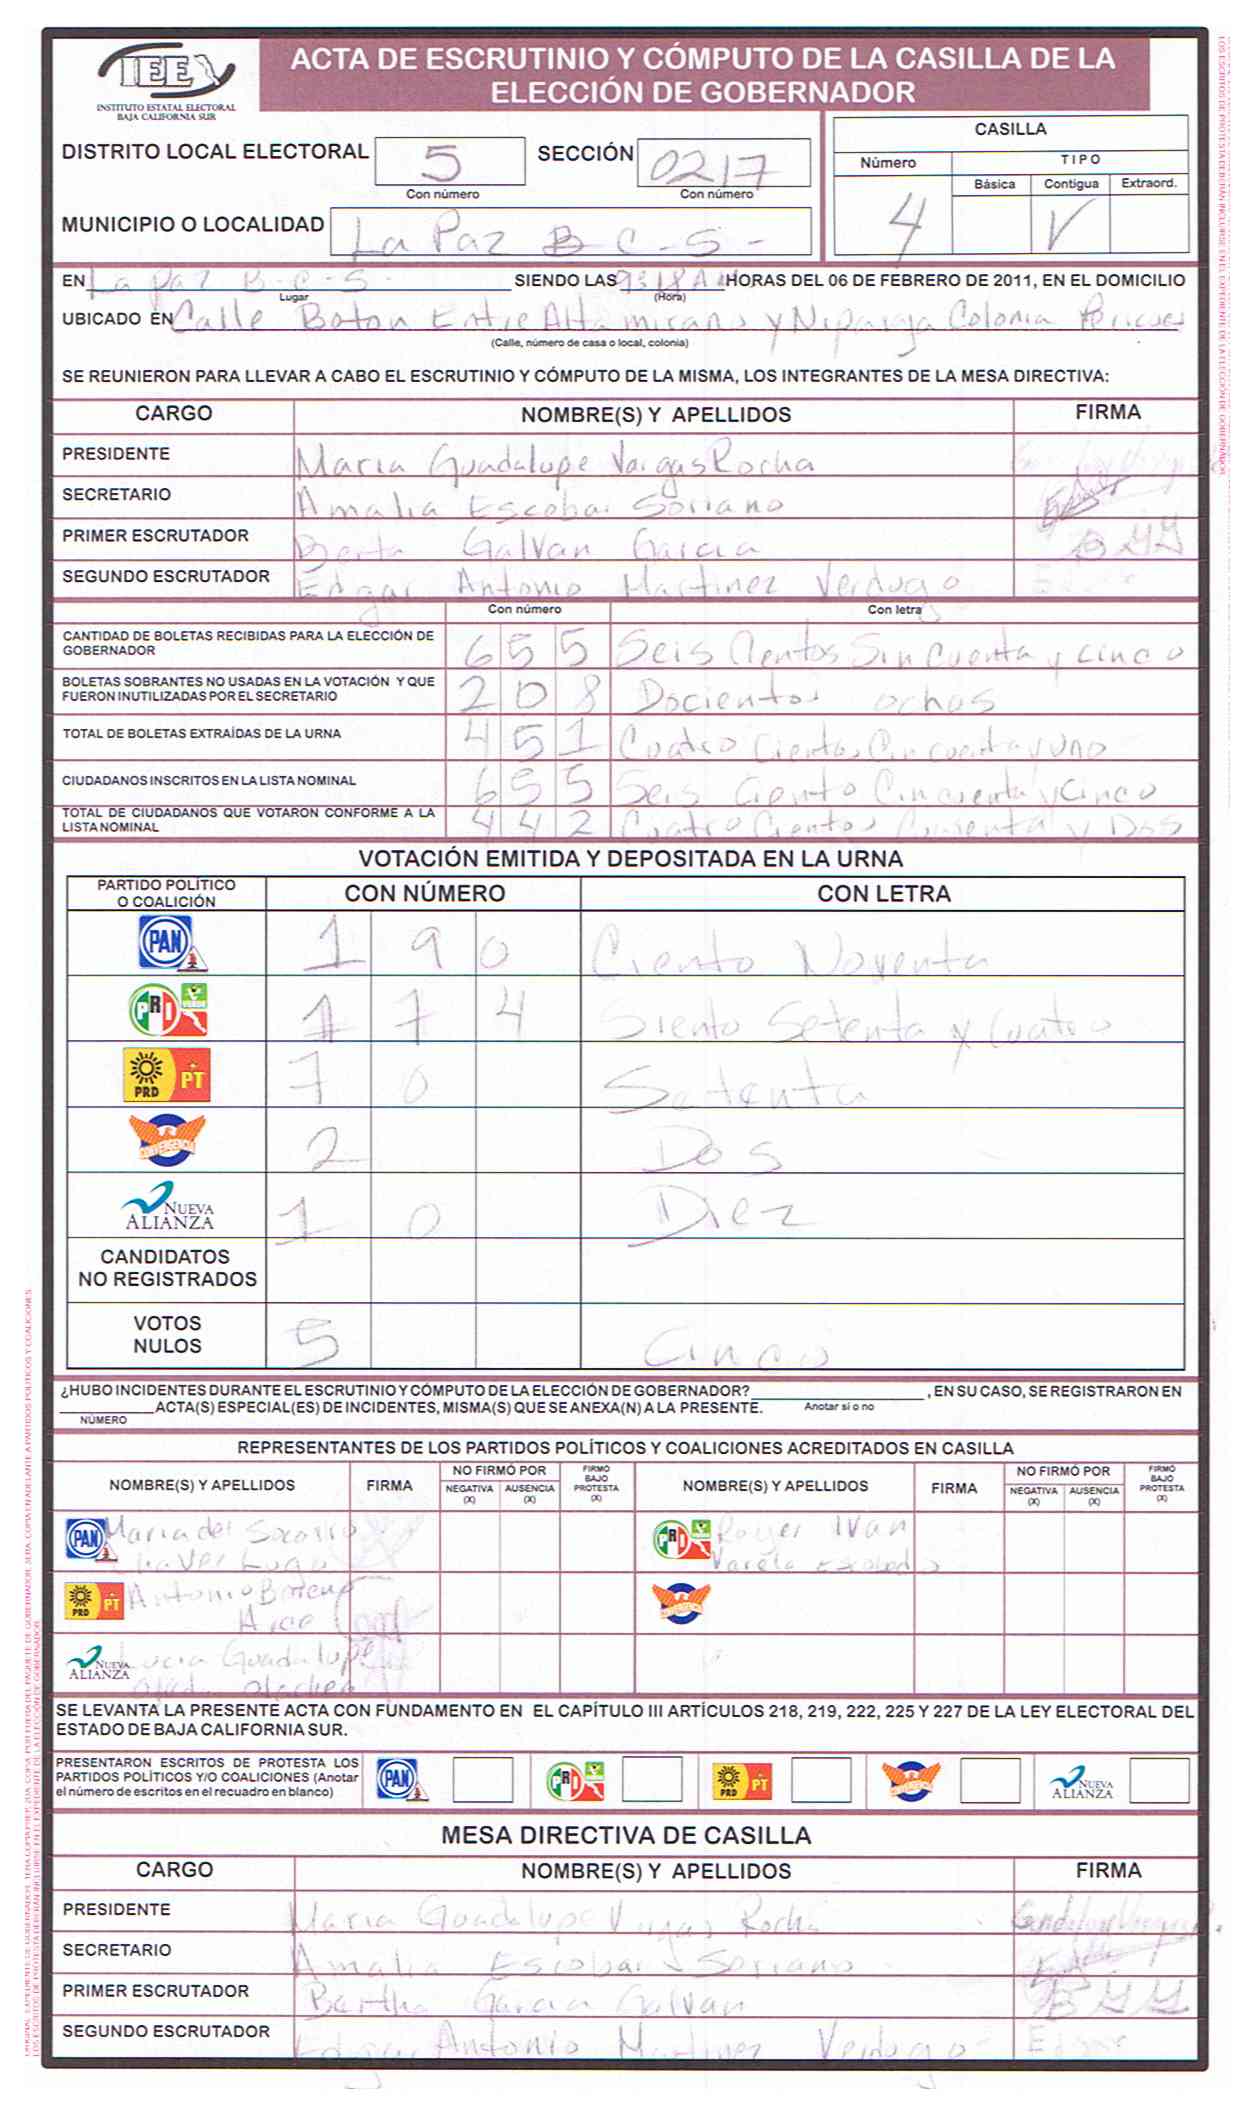 IEE
INSTITUTO ESTATAL ELECTORAL
BAJA CALIFORNIA SUR
ACTA DE ESCRUTINIO Y CÓMPUTO DE LA CASILLA DE LA
ELECCIÓN DE GOBERNADOR
DISTRITO LOCAL ELECTORAL 5 SECCIÓN 0217
Con número Con número
MUNICIPIO O LOCALIDAD La Paz B-C-S-
CASILLA
Número TIPO
Básica Contigua Extraord.
4 V
EN La Paz B-C-S- SIENDO LAS HORAS DEL 06 DE FEBRERO DE 2011, EN EL DOMICILIO
Lugar (Hora)
UBICADO EN Calle Boton Entre Altamirano y Niparaja Colonia Pericues
(Calle, número de casa o local, colonia)
SE REUNIERON PARA LLEVAR A CABO EL ESCRUTINIO Y CÓMPUTO DE LA MISMA, LOS INTEGRANTES DE LA MESA DIRECTIVA:
CARGO NOMBRE(S) Y APELLIDOS FIRMA
PRESIDENTE Maria Guadalupe Vargas Rocha
SECRETARIO Amalia Escobar Soriano
PRIMER ESCRUTADOR Berta Galvan Garcia BGG
SEGUNDO ESCRUTADOR Edgar Antonio Martinez Verdugo Edgar
Con número Con letra
CANTIDAD DE BOLETAS RECIBIDAS PARA LA ELECCIÓN DE
GOBERNADOR 655 Seis Cientos Sincuenta y cinco
BOLETAS SOBRANTES NO USADAS EN LA VOTACIÓN Y QUE
FUERON INUTILIZADAS POR EL SECRETARIO 208 Docientos ochos
TOTAL DE BOLETAS EXTRAÍDAS DE LA URNA 451 Cuatro Cientos Cincuenta y uno
CIUDADANOS INSCRITOS EN LA LISTA NOMINAL 655 Seis Ciento Cincuenta y Cinco
TOTAL DE CIUDADANOS QUE VOTARON CONFORME A LA
LISTA NOMINAL 442 Cuatro Cientos y Dos
VOTACIÓN EMITIDA Y DEPOSITADA EN LA URNA
PARTIDO POLÍTICO
O COALICIÓN CON NÚMERO CON LETRA
PAN 190 Ciento Noventa
PRI VERDE 174 Siento Setenta y Cuatro
PRD PT 70 Setenta
CONVERGENCIA 2 Dos
NUEVA ALIANZA 10 Diez
CANDIDATOS
NO REGISTRADOS
VOTOS
NULOS 5 Cinco
¿HUBO INCIDENTES DURANTE EL ESCRUTINIO Y CÓMPUTO DE LA ELECCIÓN DE GOBERNADOR? , EN SU CASO, SE REGISTRARON EN
ACTA(S) ESPECIAL(ES) DE INCIDENTES, MISMA(S) QUE SE ANEXA(N) A LA PRESENTE. Anotar sí o no
NÚMERO
REPRESENTANTES DE LOS PARTIDOS POLÍTICOS Y COALICIONES ACREDITADOS EN CASILLA
NOMBRE(S) Y APELLIDOS FIRMA NO FIRMÓ POR NEGATIVA (X) AUSENCIA (X) FIRMÓ BAJO PROTESTA (X) NOMBRE(S) Y APELLIDOS FIRMA NO FIRMÓ POR NEGATIVA (X) AUSENCIA (X) FIRMÓ BAJO PROTESTA (X)
PAN Maria del Socorro PRI VERDE Roger Ivan
Lugo Varela Escobedo
PRD PT Antonio
Arce
NUEVA ALIANZA Lucia Guadalupe
SE LEVANTA LA PRESENTE ACTA CON FUNDAMENTO EN EL CAPÍTULO III ARTÍCULOS 218, 219, 222, 225 Y 227 DE LA LEY ELECTORAL DEL
ESTADO DE BAJA CALIFORNIA SUR.
PRESENTARON ESCRITOS DE PROTESTA LOS
PARTIDOS POLÍTICOS Y/O COALICIONES (Anotar
el número de escritos en el recuadro en blanco) PAN PRI VERDE PRD PT CONVERGENCIA NUEVA ALIANZA
MESA DIRECTIVA DE CASILLA
CARGO NOMBRE(S) Y APELLIDOS FIRMA
PRESIDENTE Maria Guadalupe Vargas Rocha
SECRETARIO Amalia Escobar Soriano
PRIMER ESCRUTADOR Bertha Garcia Galvan BGG
SEGUNDO ESCRUTADOR Edgar Antonio Martinez Verdugo Edgar